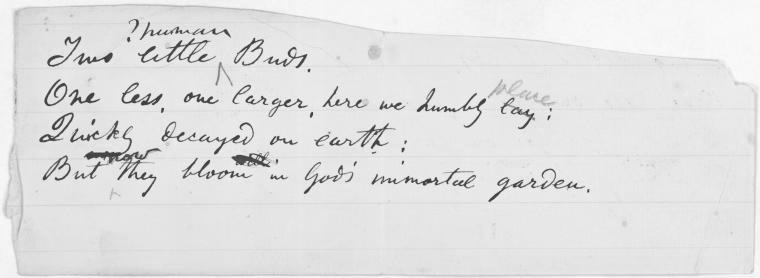 ? human
Two little ^ Buds.
place
One less, one larger, here we humbly lay:
Quickly decayed on earth:
now
But ^ they bloom in God's immortal garden.